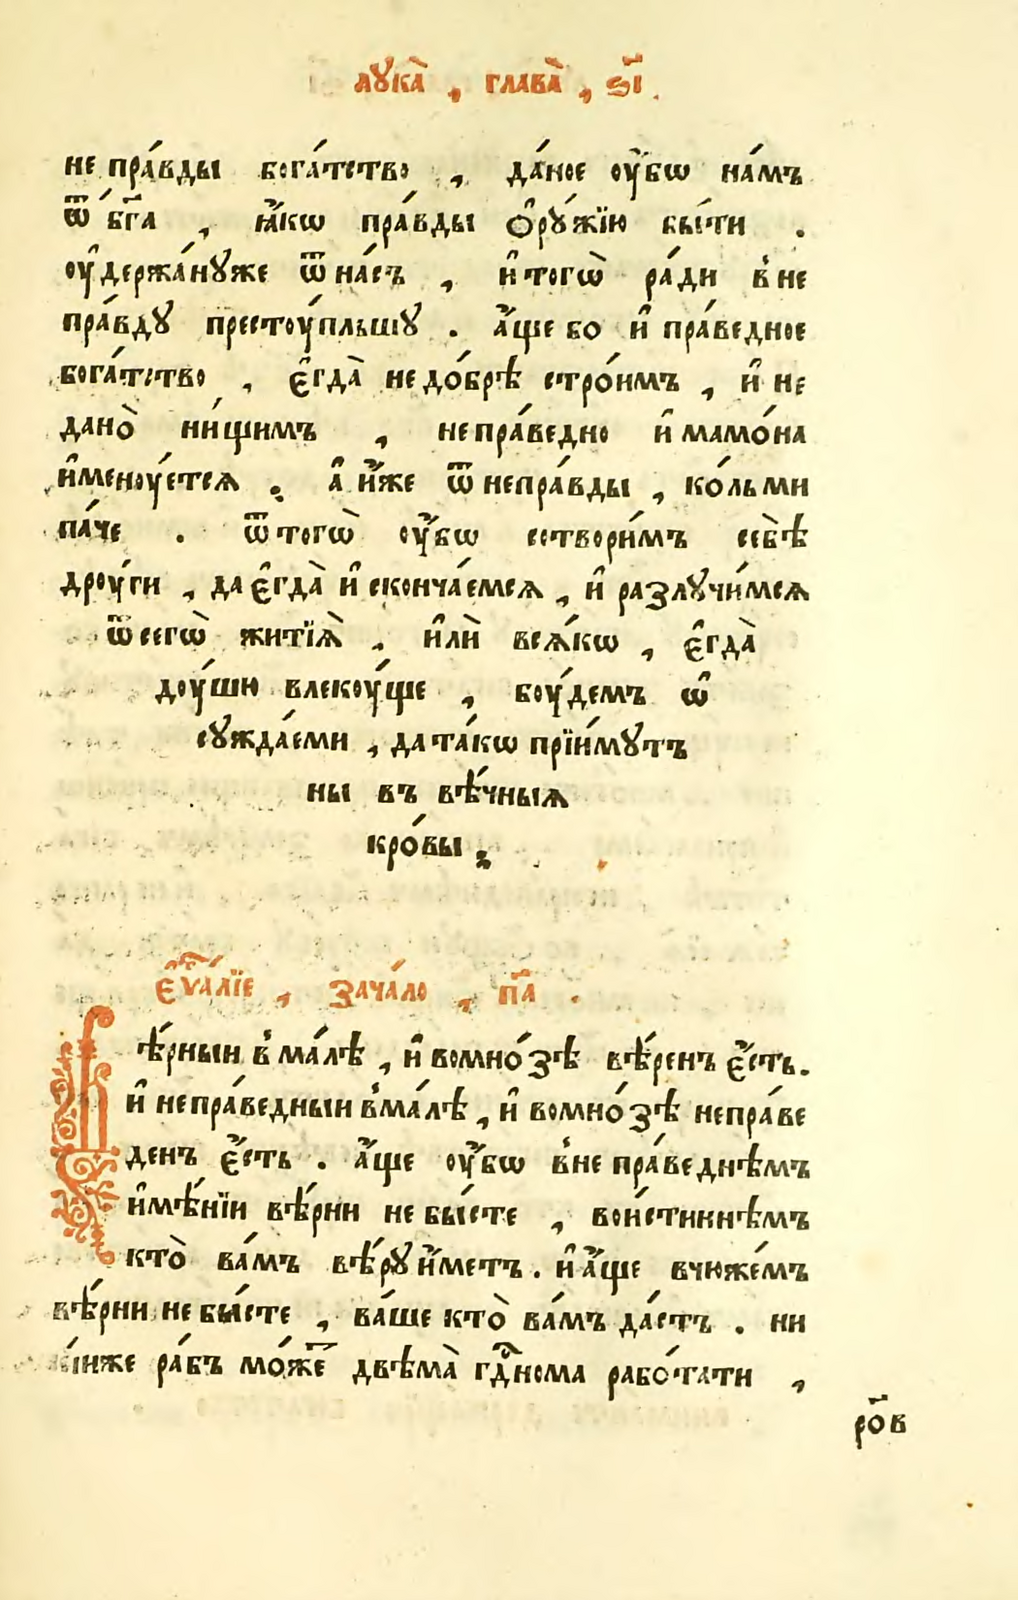 лꙋка̀ , глава̀ , ѕ҃і .
не пра́вды бога́тство , да́ное оу҆́бѡ на́мъ
ѿ бг҃а , ꙗ҆́кѡ пра́вды ѻ҆рꙋ́жїю бы́ти .
оу҆держа́нꙋже ѿ на́съ , и҆ тогѡ̀ ра́ди в не
пра́вдꙋ престоу́пльшꙋ . а҆́ще бо и҆ пра́ведное
бога́тство , є҆гда̀ не до́брѣ стро́имъ , и҆ не
дано̀ ни́щимъ , непра́ведно и҆ мамо́на
и҆меноу́етсѧ . а҆ и҆́же ѿ непра́вды , ко́льми
па́че . ѿ тогѡ̀ оу҆́бѡ сотвори́мъ себѣ̀
дроу́ги , да є҆гда̀ и҆ сконча́емсѧ , и҆ разлꙋчи́мсѧ
ѿ сегѡ̀ житїѧ̀ , и҆лѝ всѧ́кѡ , є҆гда̀
доу́шю влекоу́ще , боу́демъ ѡ҆
сꙋжда́еми , да та́кѡ прїи́мꙋтъ
ны въ вѣ́чныѧ
кро́вы ,
є҆ѵⷢ҇а́лїе , зача́ло , п҃а .
Вѣ́рныи в ма́лѣ , и҆ во мно́зѣ вѣ́ренъ є҆́сть .
и҆ непра́ведныи в ма́лѣ , и҆ во мно́зѣ непра́ве
денъ є҆́сть . а҆́ще оу҆́бѡ в непра́веднѣмъ
и҆мѣ́нїи вѣ́рни не бы́сте , во и́стиннѣмъ
кто̀ ва́мъ вѣ́рꙋ и҆́метъ . и҆ а҆́ще в чюже́мъ
вѣ́рни не бы́сте , ва́ше кто̀ ва́мъ да́стъ . ни
кі́иже ра́бъ мо́жеⷮ двѣма̀ гдⷭ҇нома рабо́тати ,
ро҃в